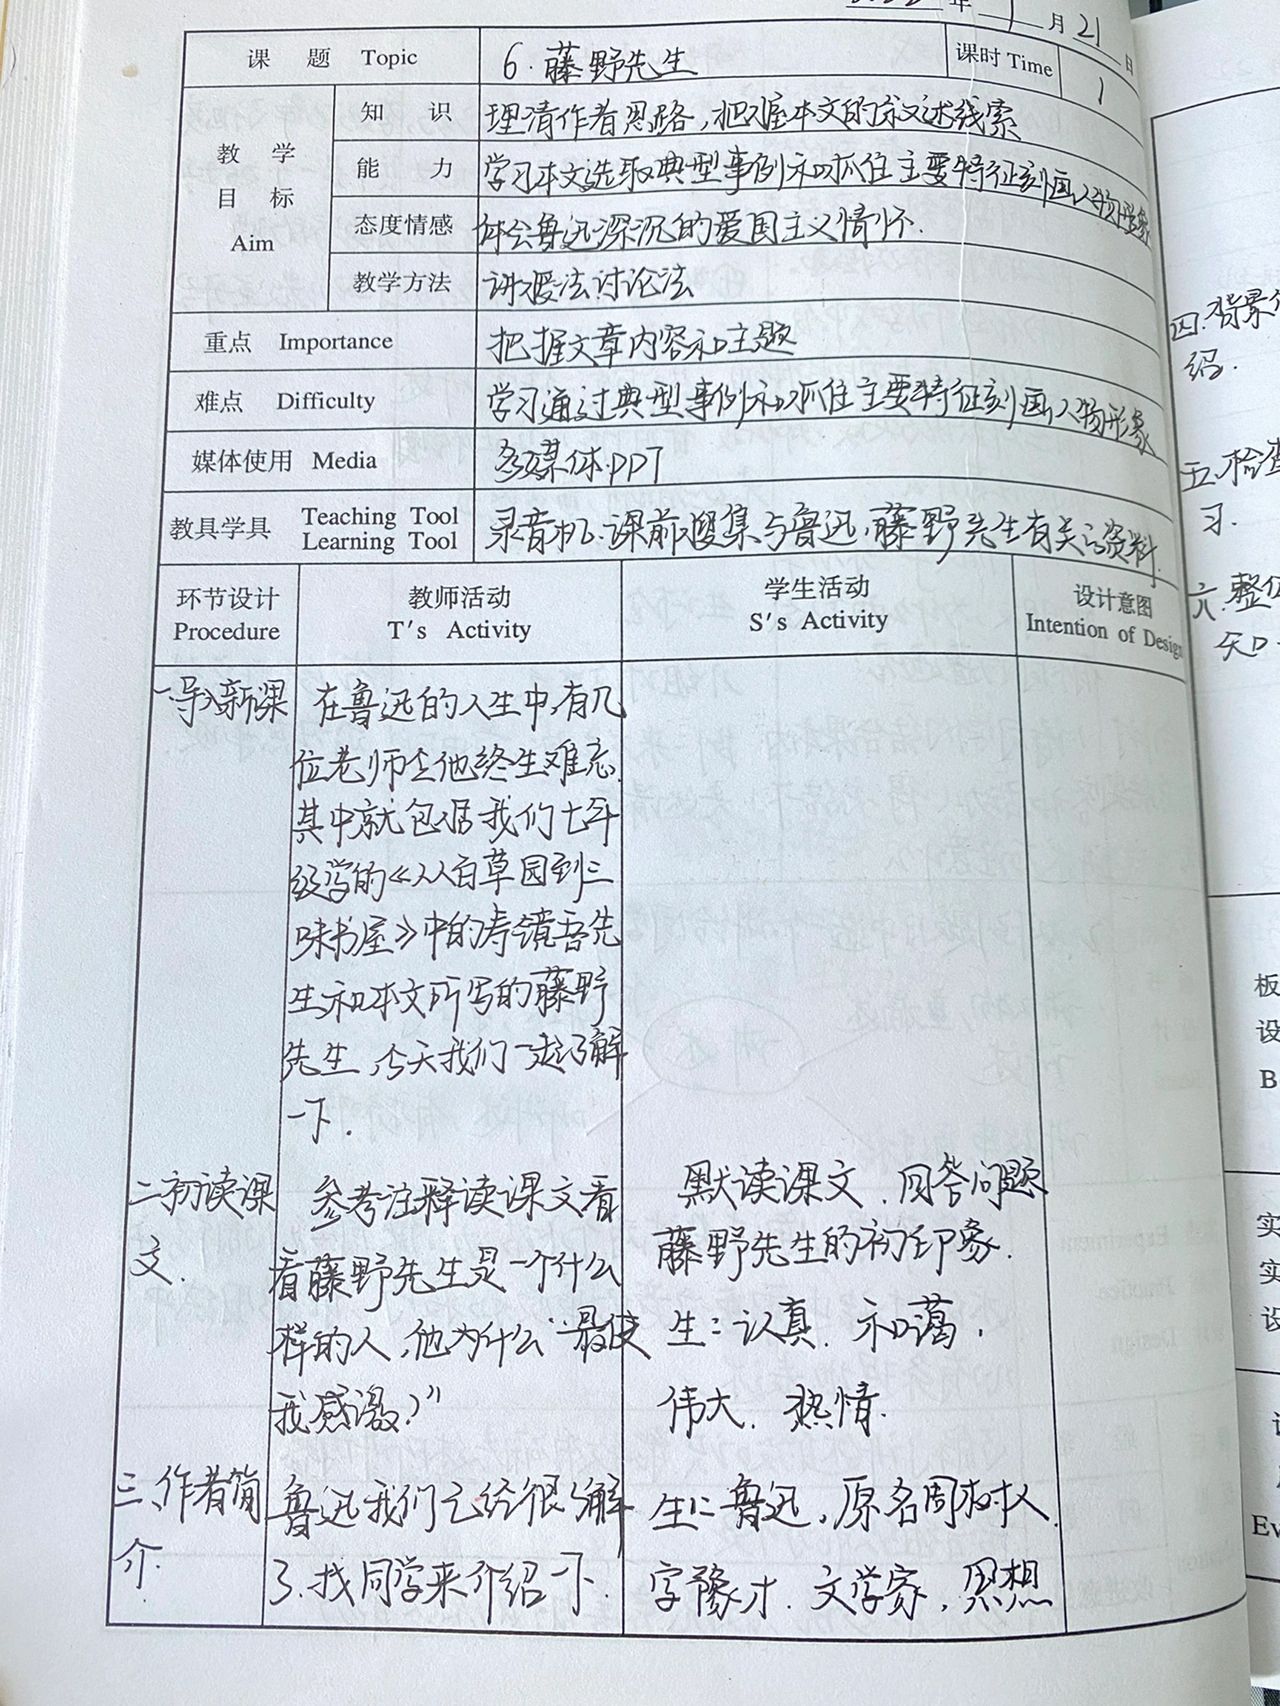 年 月21日
课 题 Topic 6.藤野先生 课时 Time 1
教 学 目 标 Aim
知 识 理清作者思路,把握本文的叙述线索
能 力 学习本文选取典型事例和抓住主要特征刻画人物形象
态度情感 体会鲁迅深沉的爱国主义情怀.
教学方法 讲授法讨论法
重点 Importance 把握文章内容和主题
难点 Difficulty 学习通过典型事例和抓住主要特征刻画人物形象
媒体使用 Media 多媒体.PPT
教具学具 Teaching Tool Learning Tool 录音机.课前搜集与鲁迅,藤野先生有关的资料.
环节设计 Procedure
教师活动 T's Activity
学生活动 S's Activity
设计意图 Intention of Design
一.导入新课
在鲁迅的人生中,有几
位老师令他终生难忘.
其中就包括我们七年
级学的《从百草园到三
味书屋》中的寿镜吾先
生和本文所写的藤野
先生,今天我们一起了解
一下.
二初读课
文.
参考注释读课文看
看藤野先生是一个什么
样的人,他为什么"最使
我感激?"
默读课文.回答问题
藤野先生的初印象.
生:认真.和蔼.
伟大.热情.
三、作者简
介.
鲁迅我们已经很了解
了.找同学来介绍一下.
生:鲁迅,原名周树人.
字豫才.文学家,思想
四.背景
绍.
五.检查
习.
六.整体
知
板
设
B
实
实
设
Ev